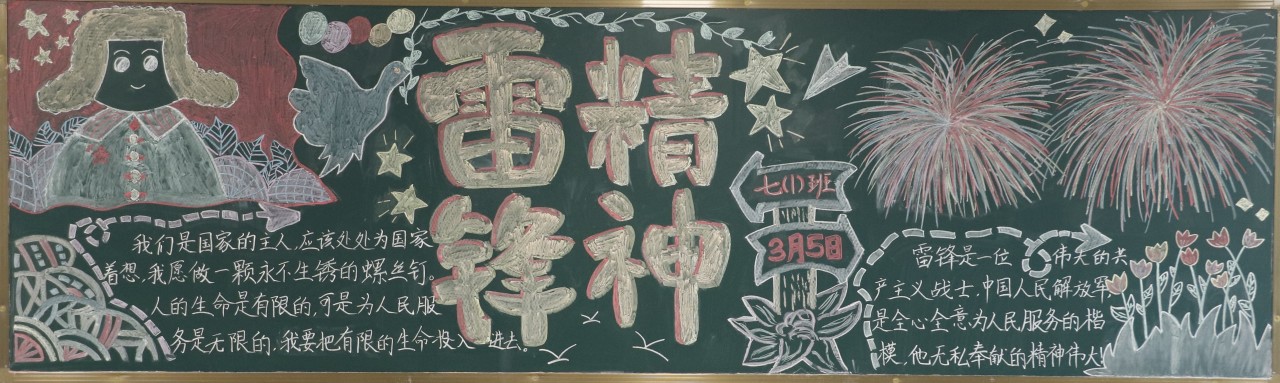 雷锋
精神
七(1)班
3月5日
我们是国家的主人,应该处处为国家
着想.我愿做一颗永不生锈的螺丝钉。
人的生命是有限的,可是为人民服
务是无限的.我要把有限的生命投入 进去。
雷锋是一位 伟大的共
产主义战士.中国人民解放军
是全心全意为人民服务的楷
模.他无私奉献的精神伟大!